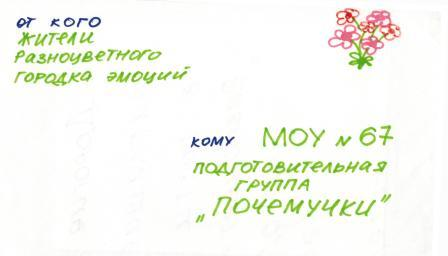 от кого
жители
разноцветного
городка эмоций
кому МОУ № 67
подготовительная
группа
„Почемучки"